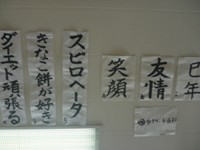 巳年
友情
笑顔
スピロヘータ
きなこ餅が好き
ダイエット頑張る